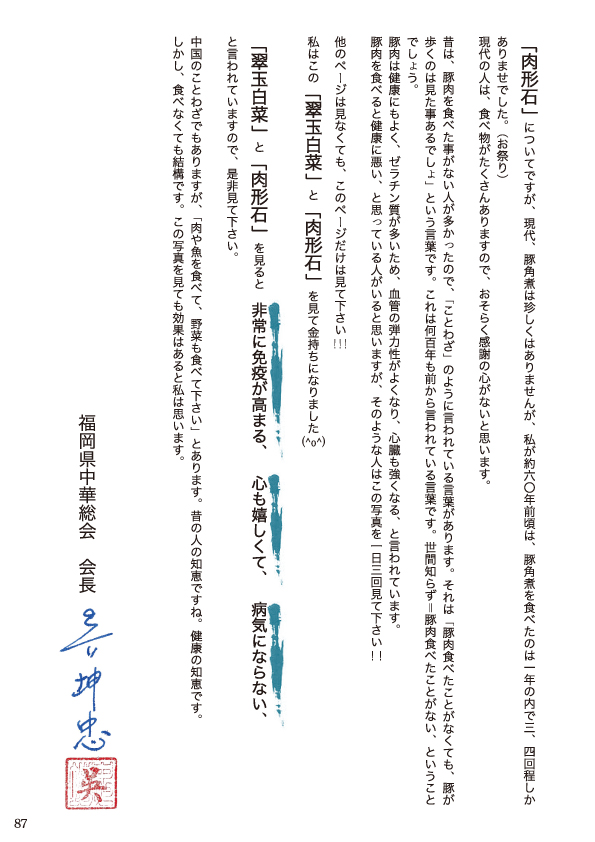 「肉形石」についてですが、現代、豚角煮は珍しくはありませんが、私が約六〇年前頃は、豚角煮を食べたのは一年の内で三、四回程しか
ありませでした。（お祭り）
現代の人は、食べ物がたくさんありますので、おそらく感謝の心がないと思います。
昔は、豚肉を食べた事がない人が多かったので、「ことわざ」のように言われている言葉があります。それは「豚肉食べたことがなくても、豚が
歩くのは見た事あるでしょ」という言葉です。これは何百年も前から言われている言葉です。世間知らず＝豚肉食べたことがない、ということ
でしょう。
豚肉は健康にもよく、ゼラチン質が多いため、血管の弾力性がよくなり、心臓も強くなる、と言われています。
豚肉を食べると健康に悪い、と思っている人がいると思いますが、そのような人はこの写真を一日三回見て下さい！！
他のページは見なくても、このページだけは見て下さい!!!
私はこの「翠玉白菜」と「肉形石」を見て金持ちになりました(^o^)
「翠玉白菜」と「肉形石」を見ると 非常に免疫が高まる、 心も嬉しくて、 病気にならない、
と言われていますので、是非見て下さい。
中国のことわざでもありますが、「肉や魚を食べて、野菜も食べて下さい」とあります。昔の人の知恵ですね。健康の知恵です。
しかし、食べなくても結構です。この写真を見ても効果はあると私は思います。
福岡県中華総会　会長
吳坤忠
吳
87